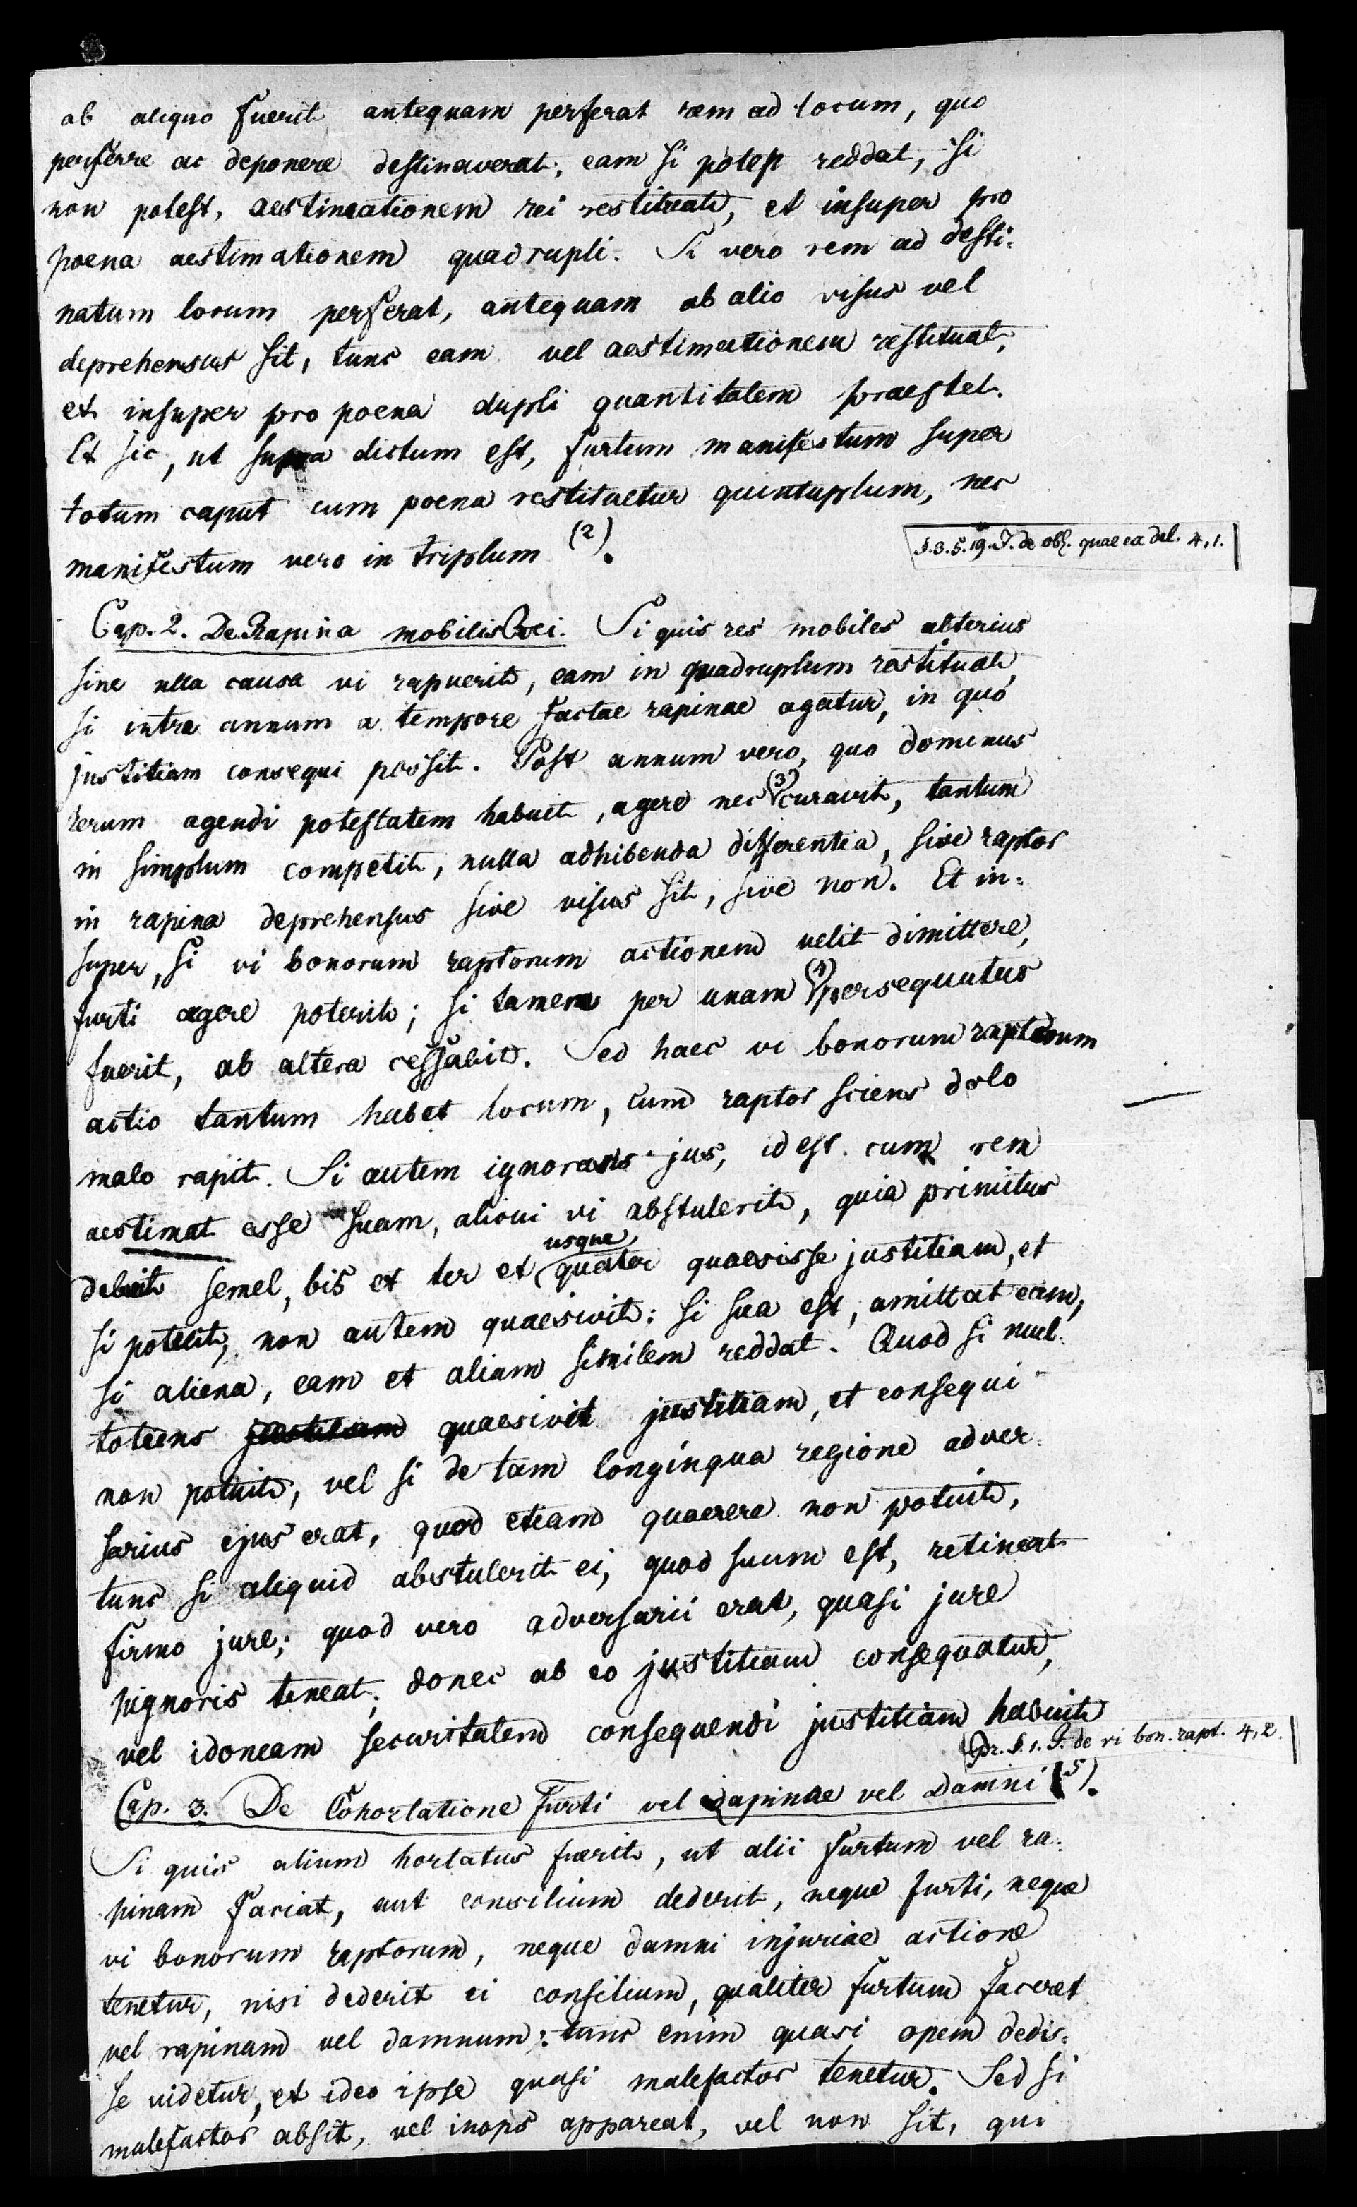 ab aliquo fuerit antequam perferat rem ad locum, quo
perferre ac deponere destinaverat, eam si potest reddat, si
non potest, aestimationem rei restituat, et insuper pro
poena aestimationem quadrupli. Si vero rem ad desti-
natum locum perferat, antequam ab alio visus vel
deprehensus sit, tunc eam vel aestimationem restituat,
et insuper pro poena dupli quantitatem praestet.
Et sic, ut supra dictum est, furtum manifestum super
totum caput cum poena restituetur quintuplum, nec
manifestum vero in triplum (2).
§.3.5.19. I. de obl. quae ex del. 4,1.
Cap. 2. De Rapina mobilis rei. Si quis res mobiles alterius
sine ulla causa vi rapuerit, eam in quadruplum restituat,
si intra annum a tempore factae rapinae agatur, in quo
justitiam consequi possit. Post annum vero, quo dominus
rerum agendi potestatem habuit, agere nec (3) curavit, tantum
in simplum competit, nulla adhibenda differentia, sive raptor
in rapina deprehensus sive visus sit, sive non. Et in-
super, si vi bonorum raptorum actionem velit dimittere,
furti agere poterit; si tamen per unam (4) persequutus
fuerit, ab altera cessabit. Sed haec vi bonorum raptorum
actio tantum habet locum, cum raptor sciens dolo
malo rapit. Si autem ignorans jus, id est cum rem
aestimat esse suam, alicui vi abstulerit, quia primitus
debuit semel, bis et ter et usque quater quaesisse justitiam, et
si potuit, non autem quaesivit: si sua est, amittat eam,
si aliena, eam et aliam similem reddat. Quod si mul-
totiens justitiam quaesivit justitiam, et consequi
non potuit, vel si de tam longinqua regione adver-
sarius ejus erat, quod etiam quaerere non potuit,
tunc si aliquid abstulerit ei, quod suum est, retineat
firmo jure; quod vero adversarii erat, quasi jure
pignoris teneat, donec ab eo justitiam consequatur,
vel idoneam securitatem consequendi justitiam habuit
Pr. §.1. I. de vi bon. rapt. 4,2.
Cap. 3. De Cohortatione Furti vel Rapinae vel Damni (5).
Si quis alium hortatus fuerit, ut alii furtum vel ra-
pinam faciat, aut consilium dederit, neque furti, neque
vi bonorum raptorum, neque damni injuriae actione
tenetur, nisi dederit ei consilium, qualiter furtum faceret
vel rapinam vel damnum: tunc enim quasi opem dedis-
se videtur, et ideo ipse quasi malefactor tenetur. Sed si
malefactor absit, vel inops appareat, vel non sit, qui